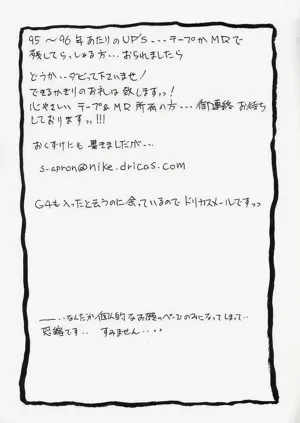 95～96年あたりのUP'S---テープかMRで
残してらっしゃる方...おられましたら
どうか...ダビって下さいませ!
できるかぎりのお礼は致しますッ!
心やさしいテープ&MR所有の方...御連絡お待ち
しておりますッッ!!!
おくずけにも書きましたが---
s-apron@nike.dricas.com
G4も入ったと云うのに余っているのでドリカスメールですッッ
――...なんだか個人的なお願いページのみになってしまって..
恐縮です.. すみません....